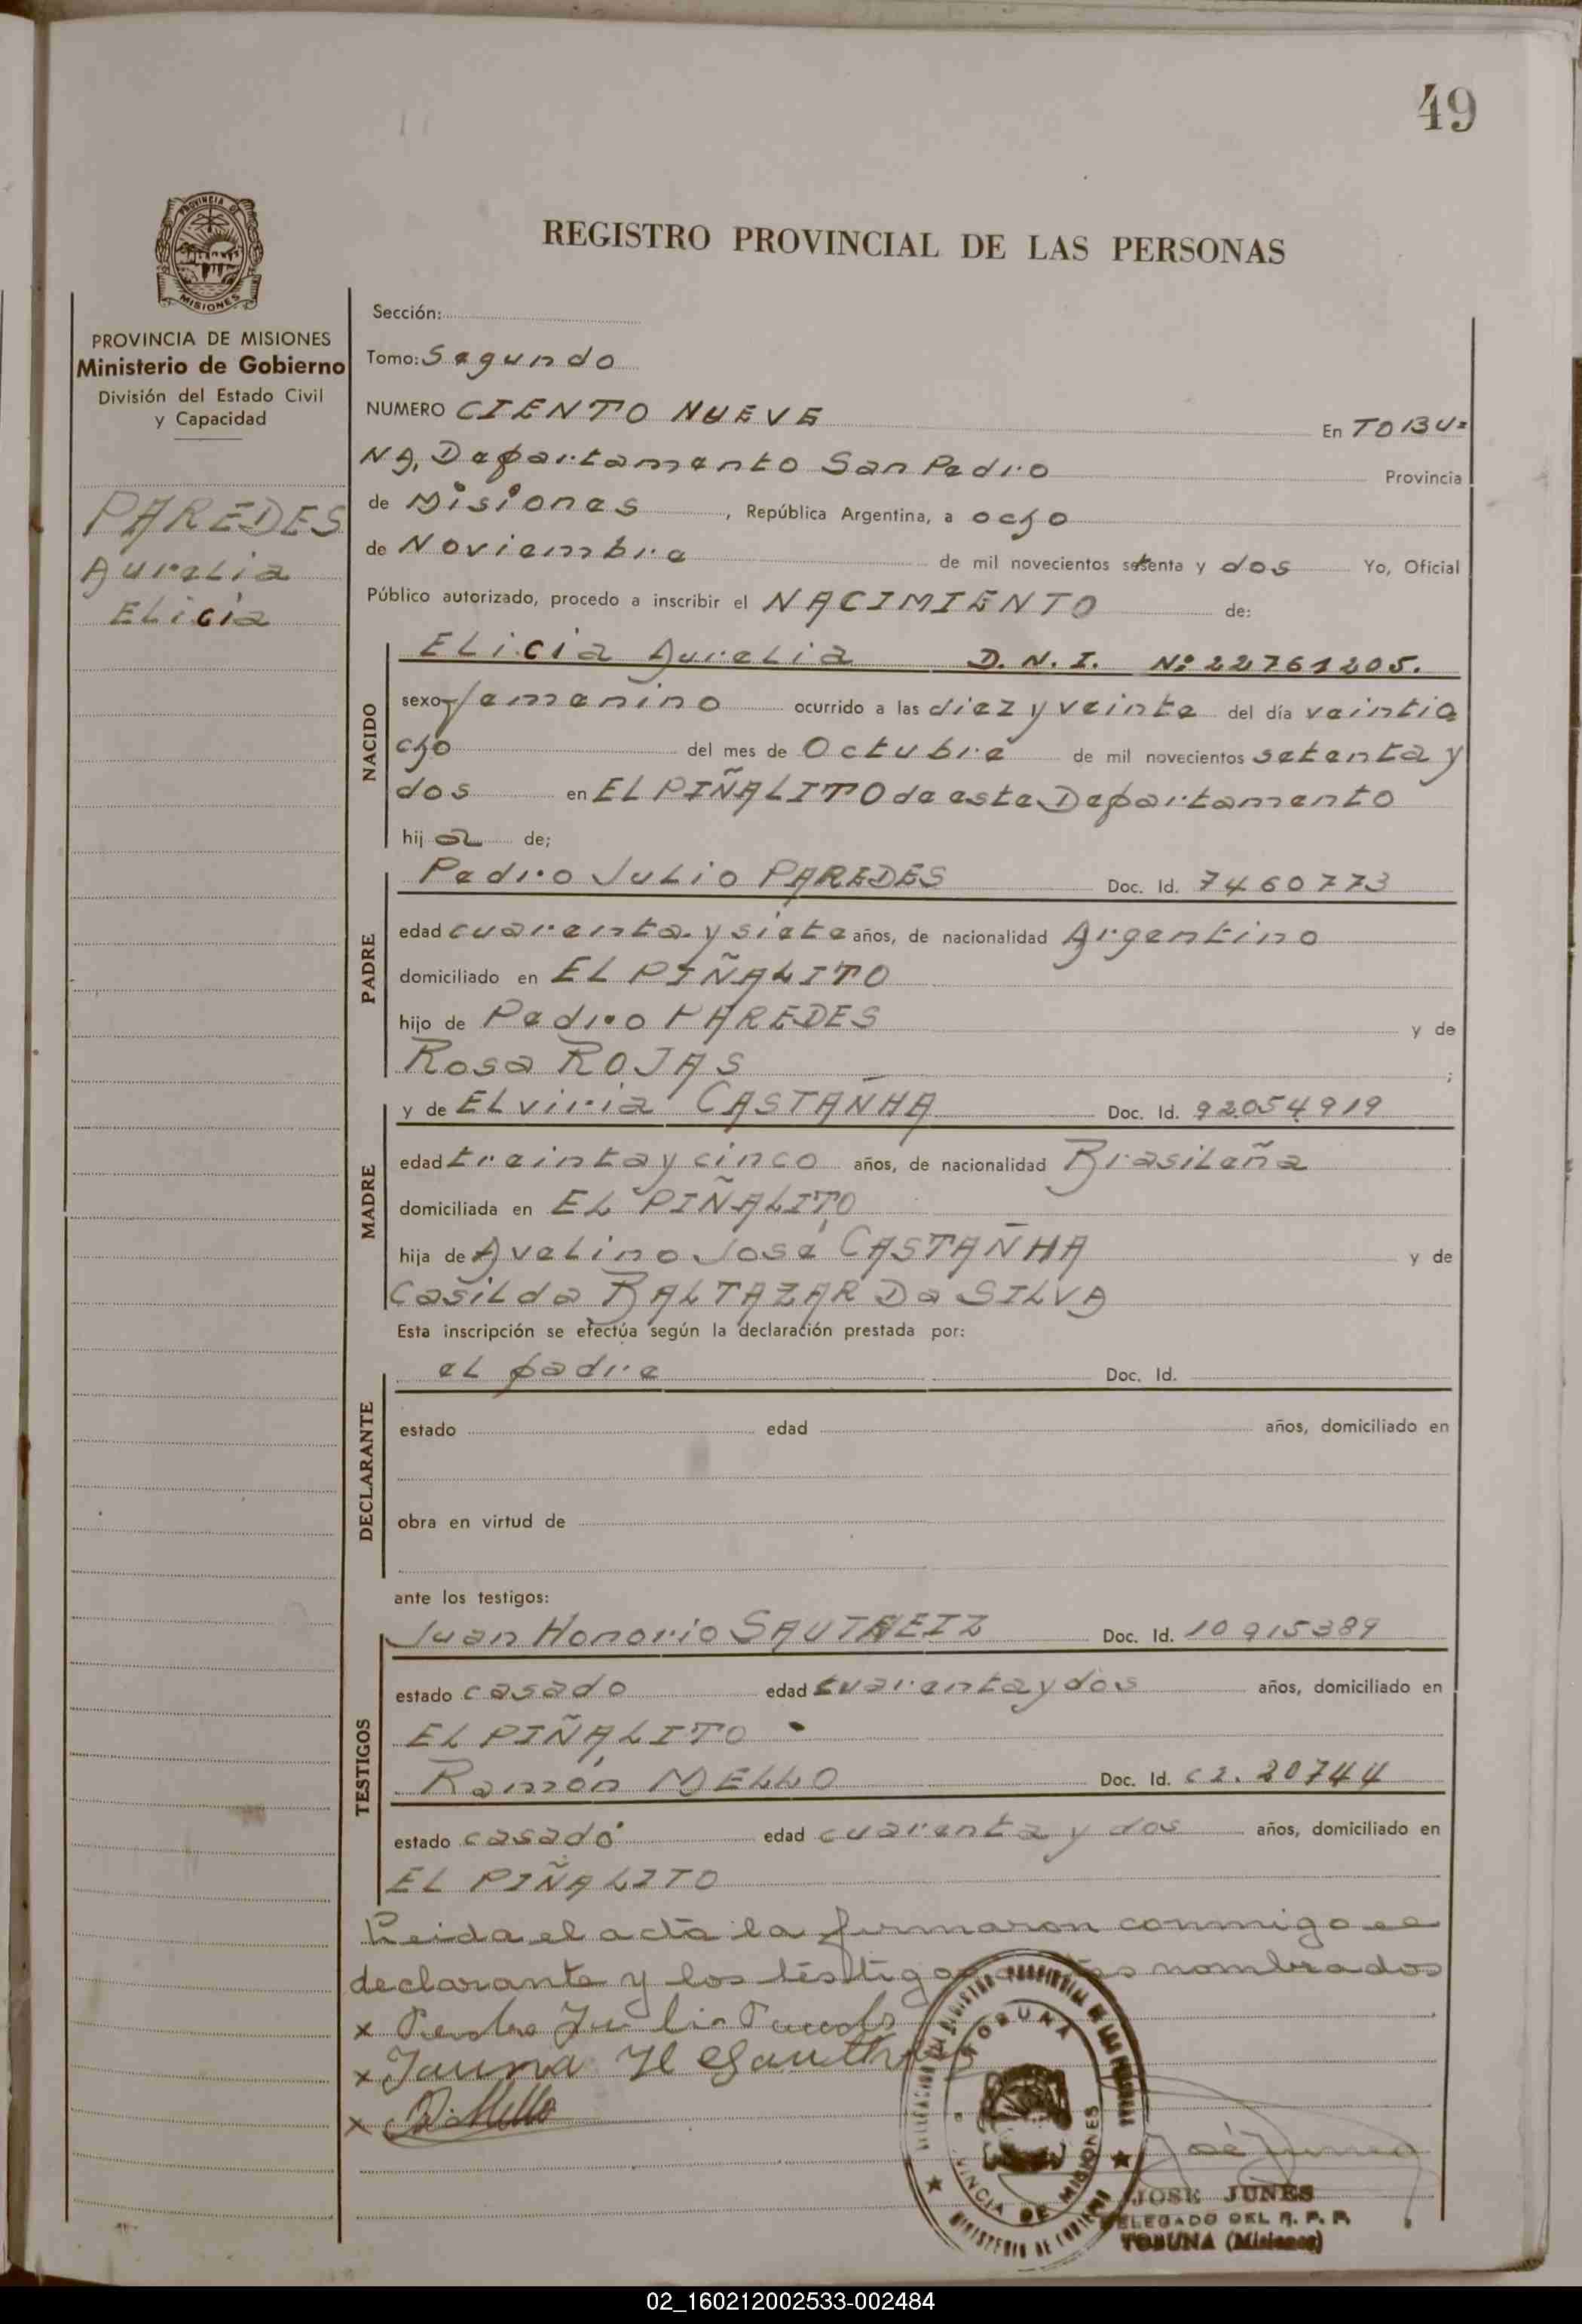 49
PROVINCIA DE MISIONES
REGISTRO PROVINCIAL DE LAS PERSONAS
PROVINCIA DE MISIONES
Ministerio de Gobierno
División del Estado Civil
y Capacidad
PAREDES
Aurelia
Elicia
Sección:
Tomo: Segundo
NUMERO CIENTO NUEVE En TOBU=
NA, Departamento San Pedro Provincia
de Misiones, República Argentina, a ocho
de Noviembre de mil novecientos setenta y dos Yo, Oficial
Público autorizado, procedo a inscribir el NACIMIENTO de:
NACIDO
Elicia Aurelia D.N.I. Nº 22761205.
sexo femenino ocurrido a las diez y veinte del día veintio
cho del mes de Octubre de mil novecientos setenta y
dos en EL PIÑALITO de este Departamento
hij a de;
PADRE
Pedro Julio PAREDES Doc. Id. 7460773
edad cuarenta y siete años, de nacionalidad Argentino
domiciliado en EL PIÑALITO
hijo de Pedro PAREDES y de
Rosa ROJAS ;
MADRE
y de Elviria CASTAÑHA Doc. Id. 92.054.919
edad treinta y cinco años, de nacionalidad Brasileña
domiciliada en EL PIÑALITO
hija de Avelino José CASTAÑHA y de
Casilda BALTAZAR Da SILVA
Esta inscripción se efectúa según la declaración prestada por:
DECLARANTE
el padre Doc. Id.
estado edad años, domiciliado en
obra en virtud de
ante los testigos:
TESTIGOS
Juan Honorio Doc. Id. 10915389
estado casado edad cuarenta y dos años, domiciliado en
EL PIÑALITO
Ramón MELLO Doc. Id. CI. 20744
estado casado edad cuarenta y dos años, domiciliado en
EL PIÑALITO
Leida el acta la firmaron conmigo el
declarante y los testigos nombrados
x Pedro Julio
x
x R. Mello
TOBUNA
DE MISIONES
José Junes
JOSE JUNES
DELEGADO DEL R. P. P.
TOBUNA (Misiones)
02_160212002533-002484